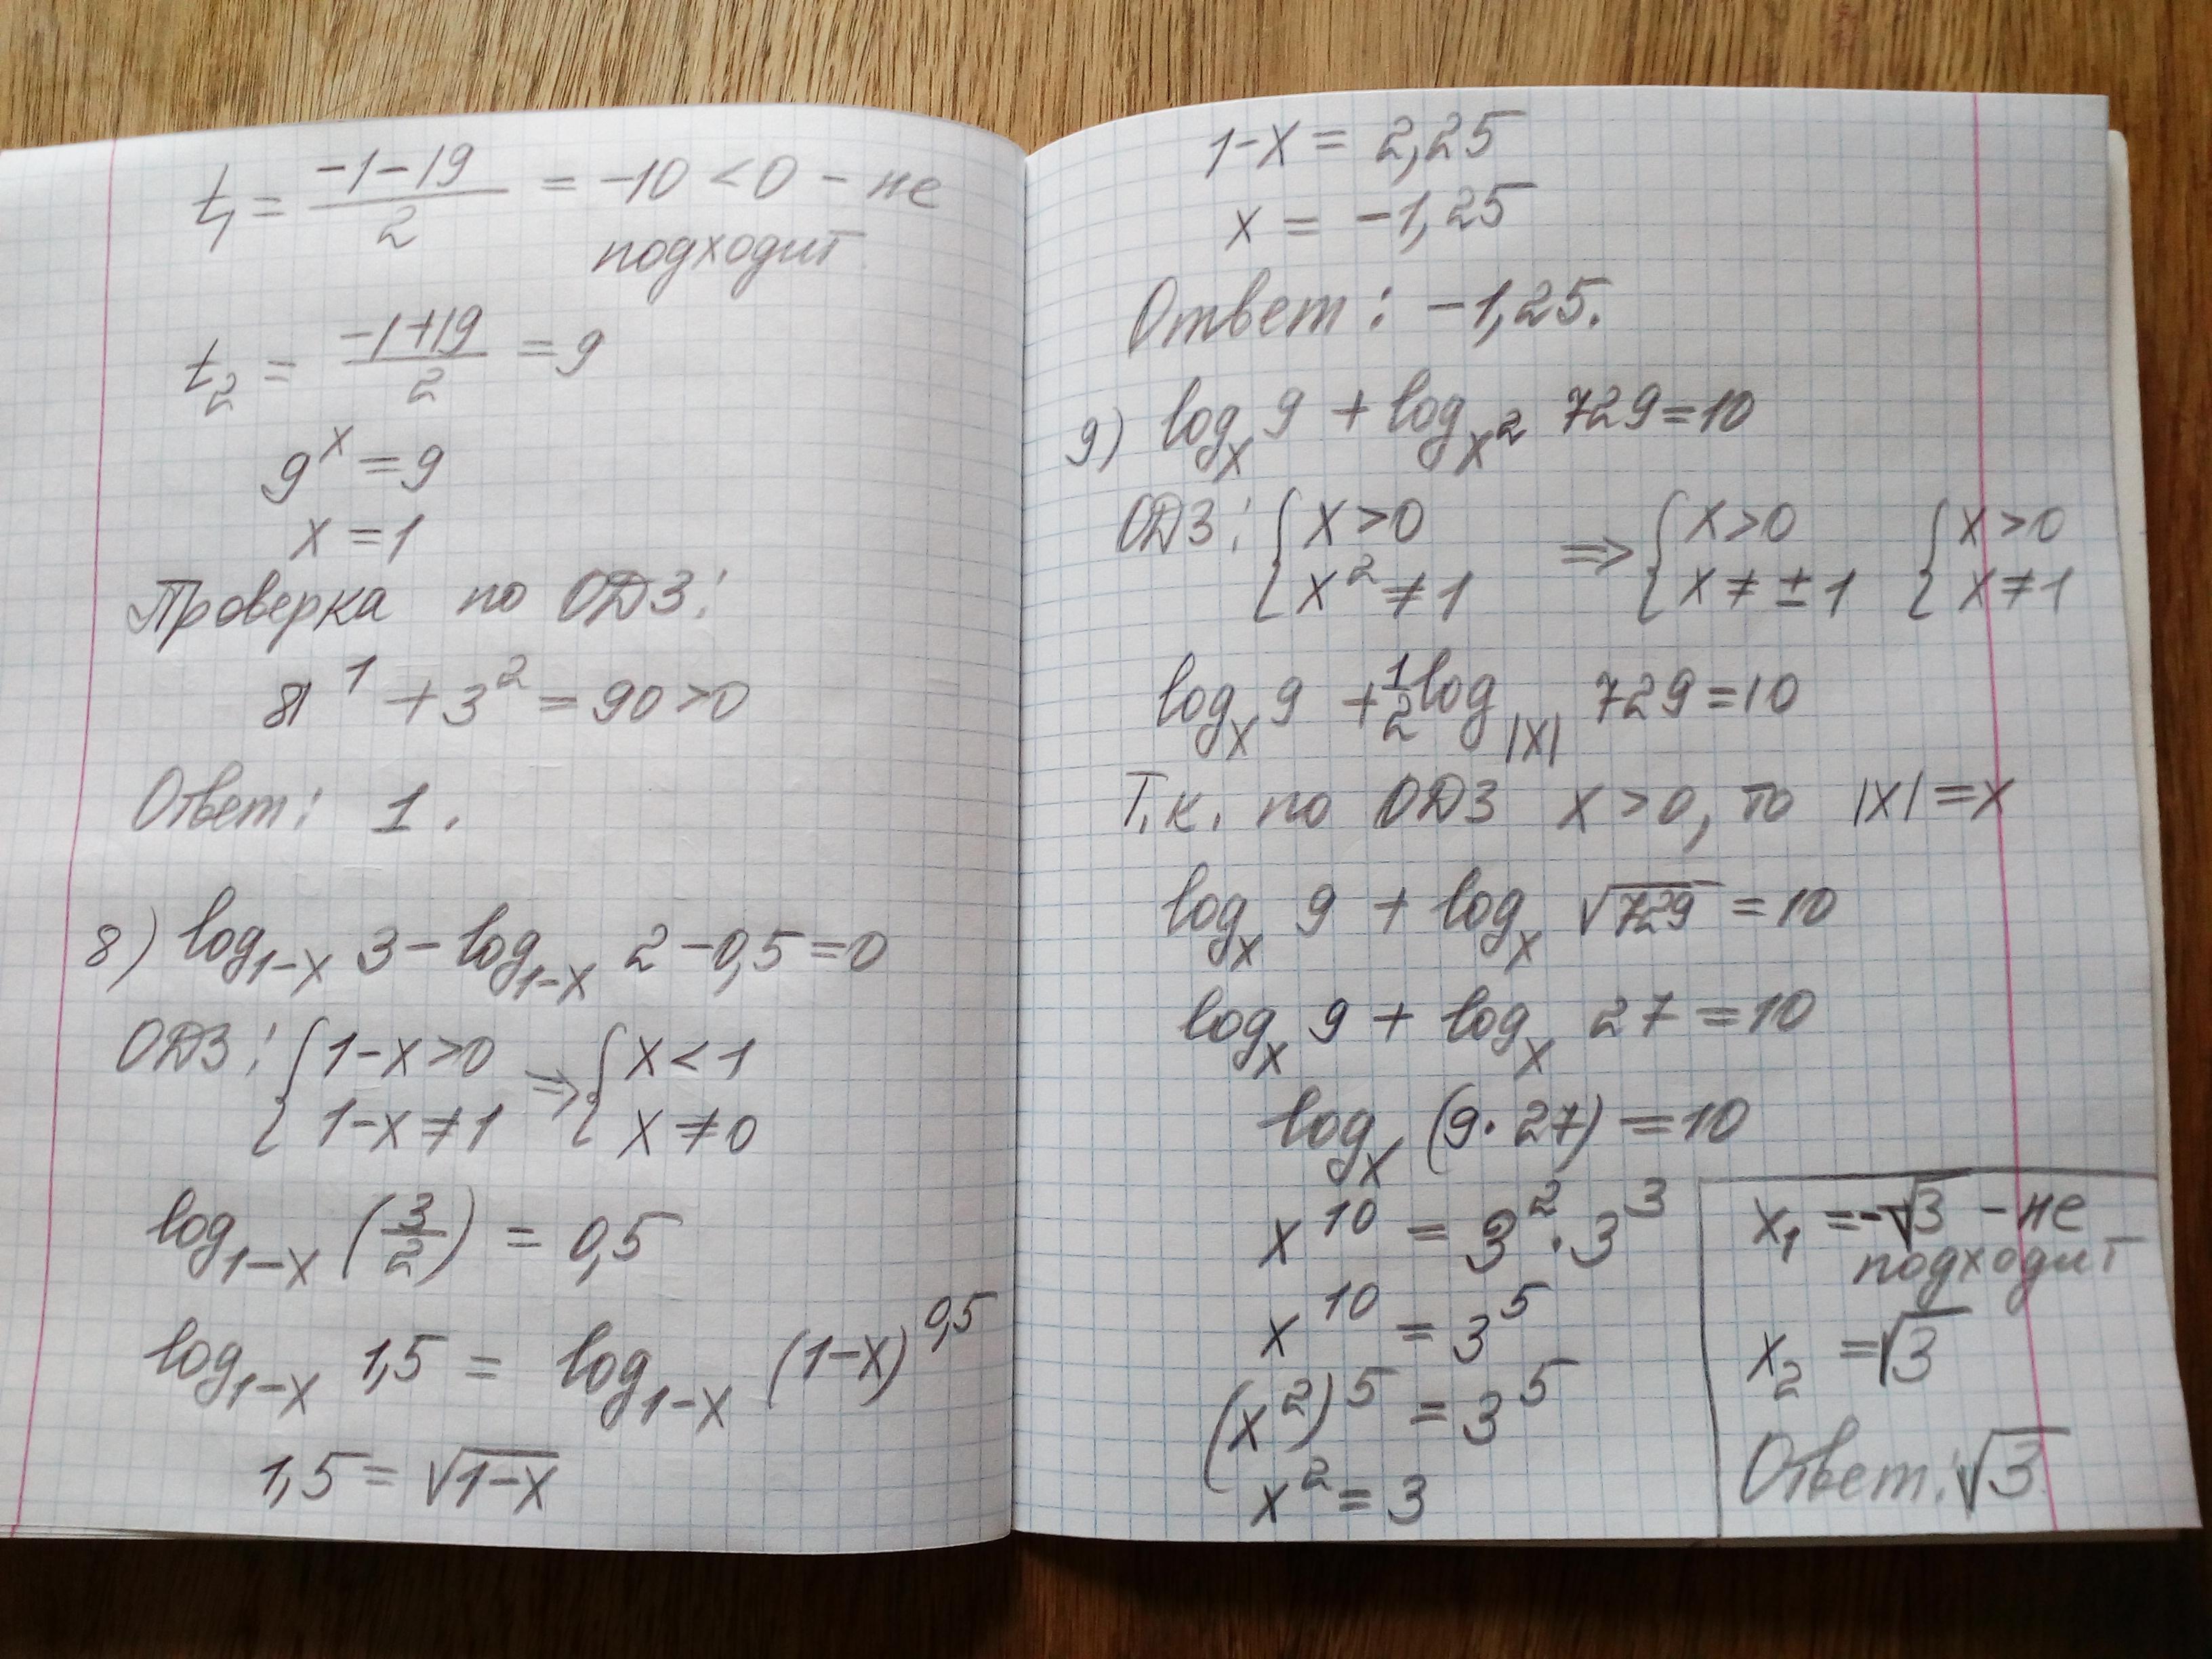 t₁ = (-1-19)/2 = -10 < 0 - не
подходит
t₂ = (-1+19)/2 = 9
9^x = 9
x = 1
Проверка по ОДЗ:
81^1 + 3^2 = 90 > 0
Ответ: 1.
8) log_{1-x} 3 - log_{1-x} 2 - 0,5 = 0
ОДЗ: { 1-x > 0 ⇒ { x < 1
1-x ≠ 1 x ≠ 0
log_{1-x} (3/2) = 0,5
log_{1-x} 1,5 = log_{1-x} (1-x)^{0,5}
1,5 = √(1-x)
1-x = 2,25
x = -1,25
Ответ: -1,25.
9) log_x 9 + log_{x²} 729 = 10
ОДЗ: { x > 0 ⇒ { x > 0 { x > 0
x² ≠ 1 x ≠ ±1 x ≠ 1
log_x 9 + 1/2 log_{|x|} 729 = 10
Т.к. по ОДЗ x > 0, то |x| = x
log_x 9 + log_x √729 = 10
log_x 9 + log_x 27 = 10
log_x (9·27) = 10
x^10 = 3^2 · 3^3
x^10 = 3^5
(x^2)^5 = 3^5
x^2 = 3
x₁ = -√3 - не
подходит
x₂ = √3
Ответ: √3